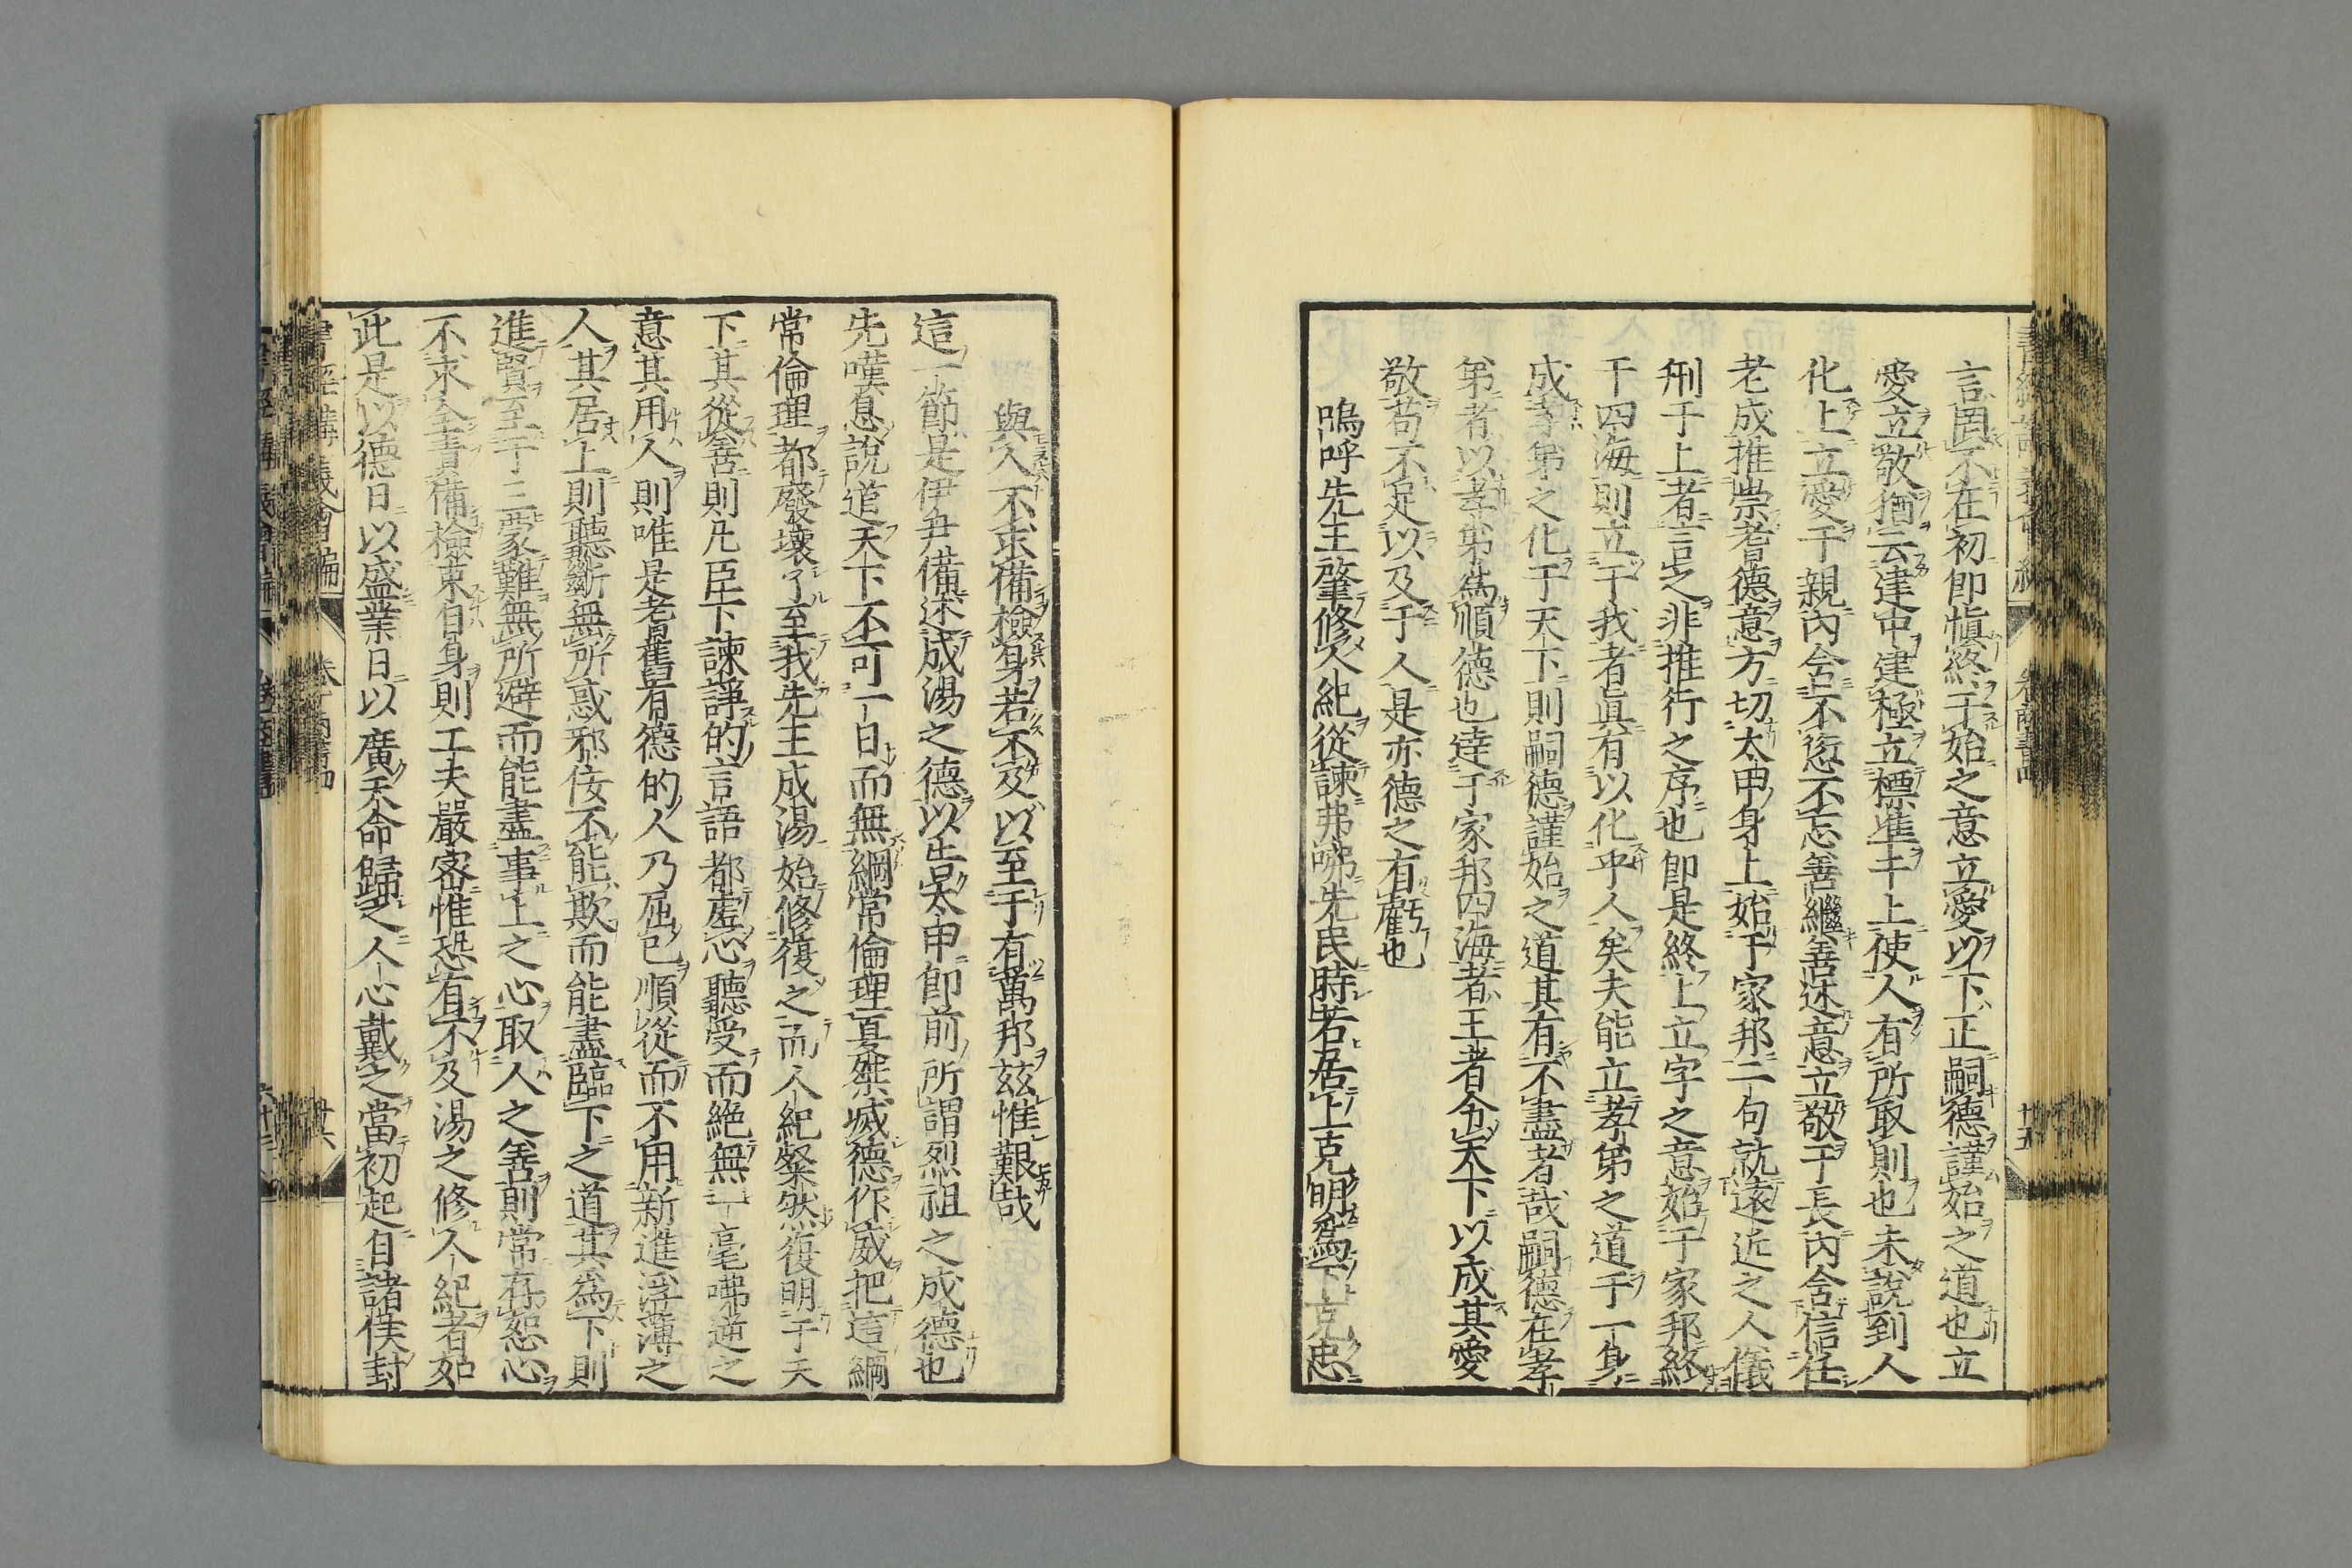 言罔不在初卽愼終于始之意立愛以下正嗣德謹始之道也立
愛立敬猶云建中建極立標準于上使人有所取則也未說到人
化上立愛于親內含不愆不忘善繼善述意立敬于長內含信任
老成推崇耆德意方切太甲身上始于家邦二句就遠近之人儀
刑于上者言之非推行之序也卽是終上立字之意始于家邦終
于四海則立于我者眞有以化乎人矣夫能立孝第之道于一身
成孝第之化于天下則嗣德謹始之道其有不盡者哉嗣德在孝
第者以孝第爲順德也達于家邦四海者王者合天下以成其愛
敬苟不足以及于人是亦德之有虧也
嗚呼先王肇修人紀從諫弗咈先民時若居上克明爲下克忠
與人不求備檢身若不及以至于有萬邦玆惟艱哉
這一節是伊尹備述成湯之德以告太甲卽前所謂烈祖之成德也
先嘆息說道天下不可一日而無綱常倫理夏桀滅德作威把這綱
常倫理都廢壞了至我先王成湯始修復之而人紀粲然復明于天
下其從善則凡臣下諫諍的言語都虛心聽受而絶無一毫咈逆之
意其用人則唯是老舊有德的人乃屈己順從而不用新進浮薄之
人其居上則聽斷無所惑邪佞不能欺而能盡臨下之道其爲下則
進賢至于三蒙難無所避而能盡事上之心取人之善則常存恕心
不求全責備檢束自身則工夫嚴密惟恐有不及湯之修人紀者如
此是以德日以盛業日以廣天命歸之人心戴之當初起自諸侯封
書經講義會編
卷
廿六